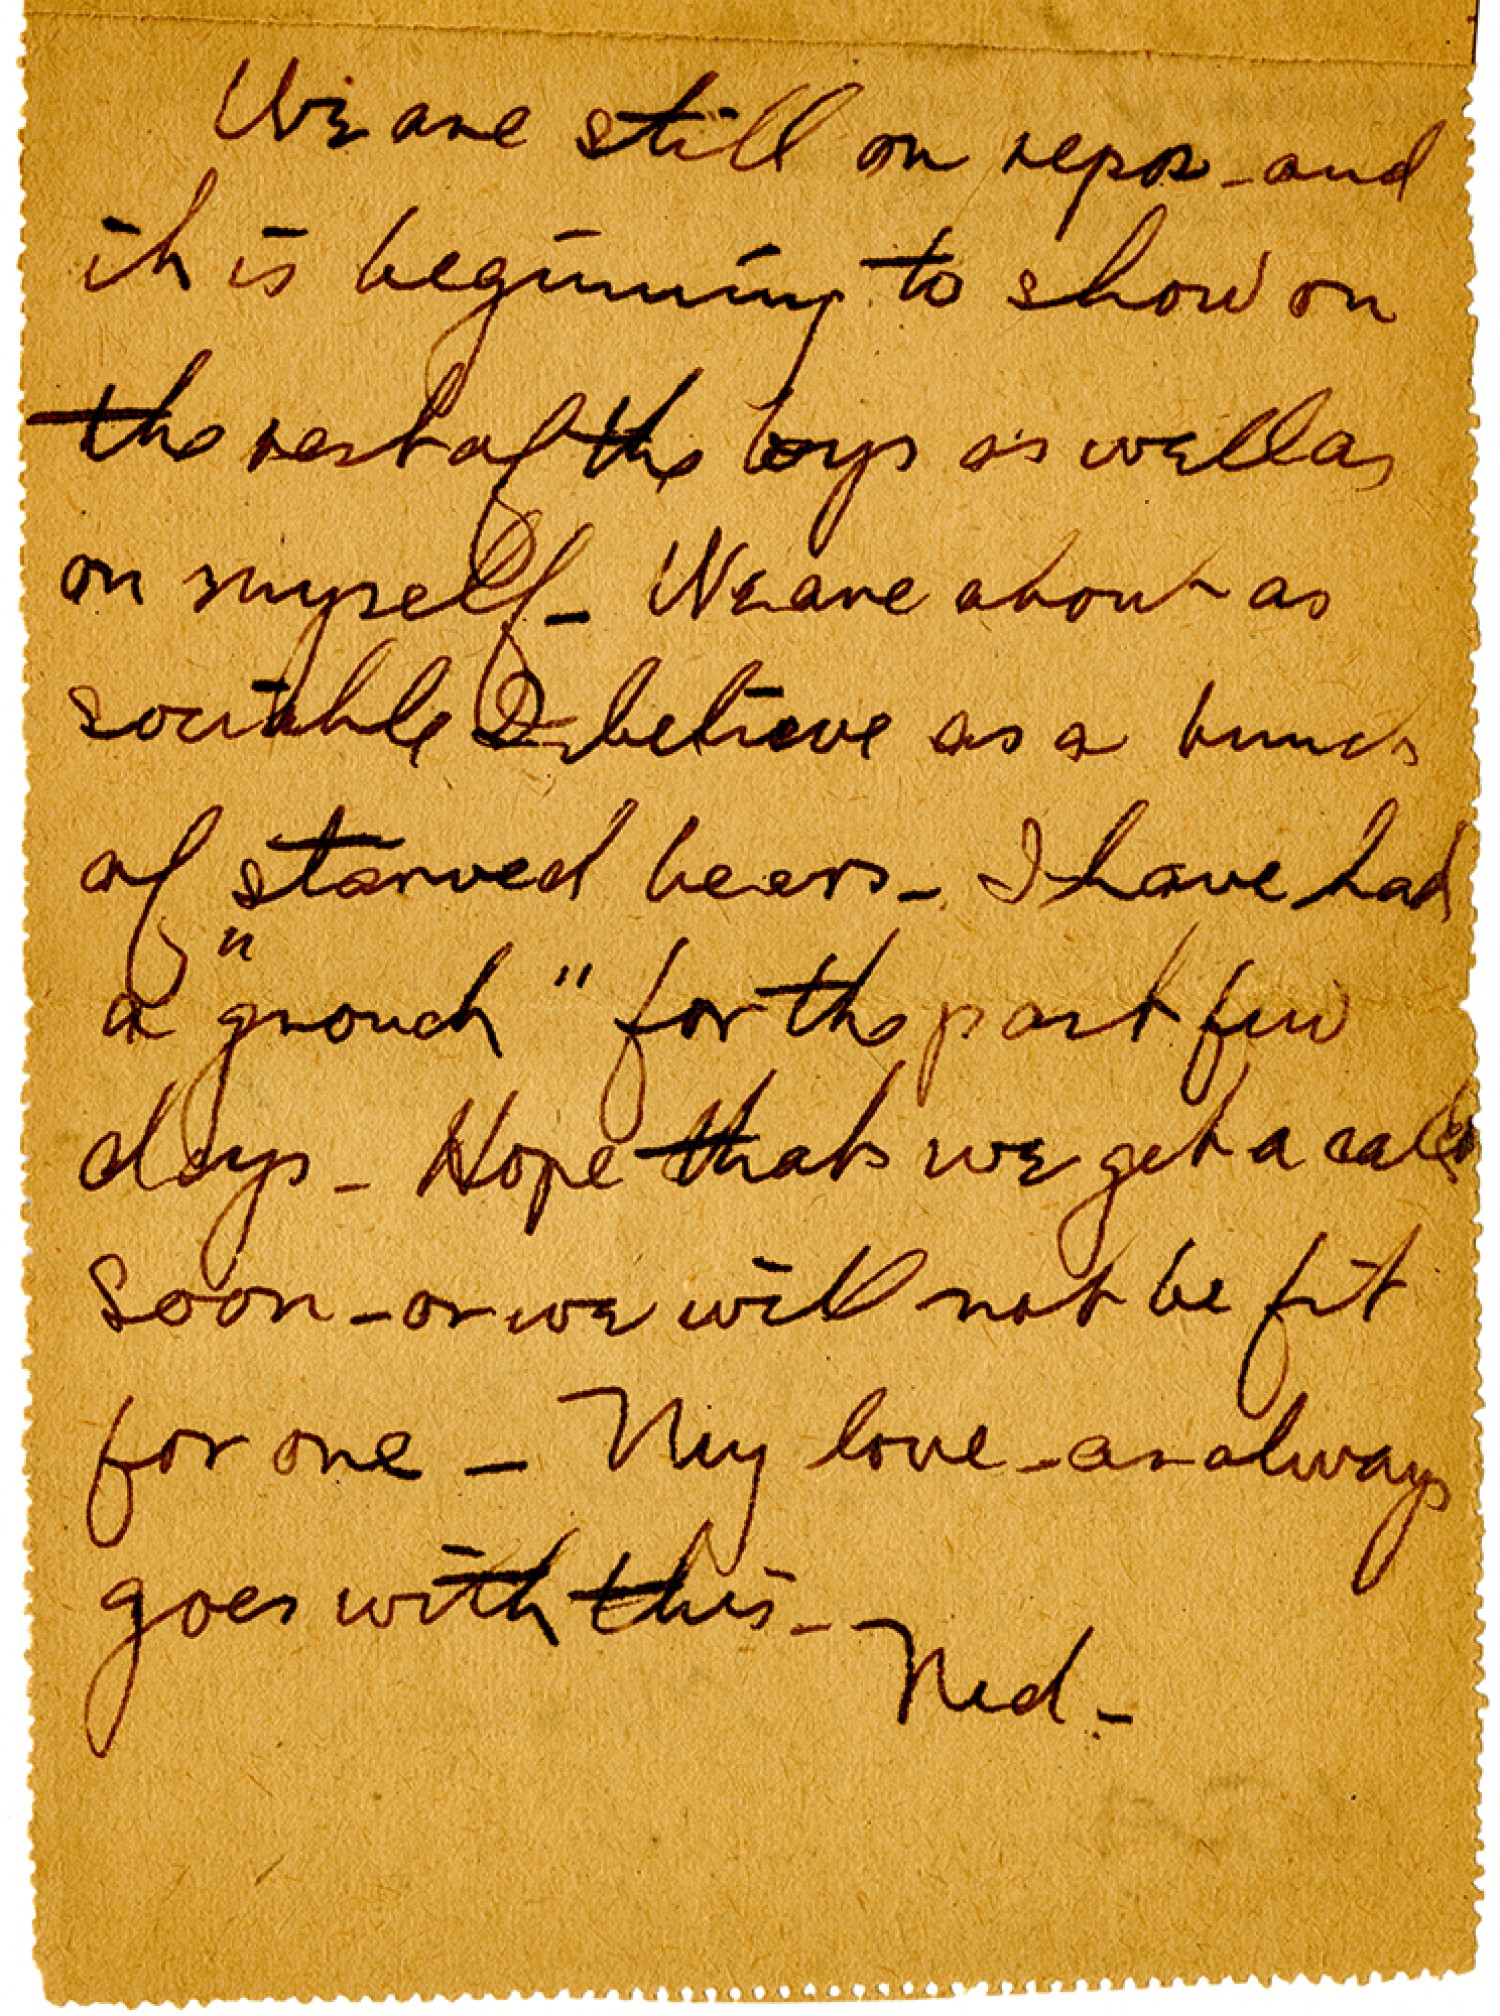 We are still on repos - and
it is beginning to show on
the rest of the boys as well as
on myself - We are about as
sociable I believe as a bunch
of starved bears - I have had
a "grouch" for the past few
days - Hope that we get a call
soon - or we will not be fit
for one - My love - as always
goes with this -
Ned -